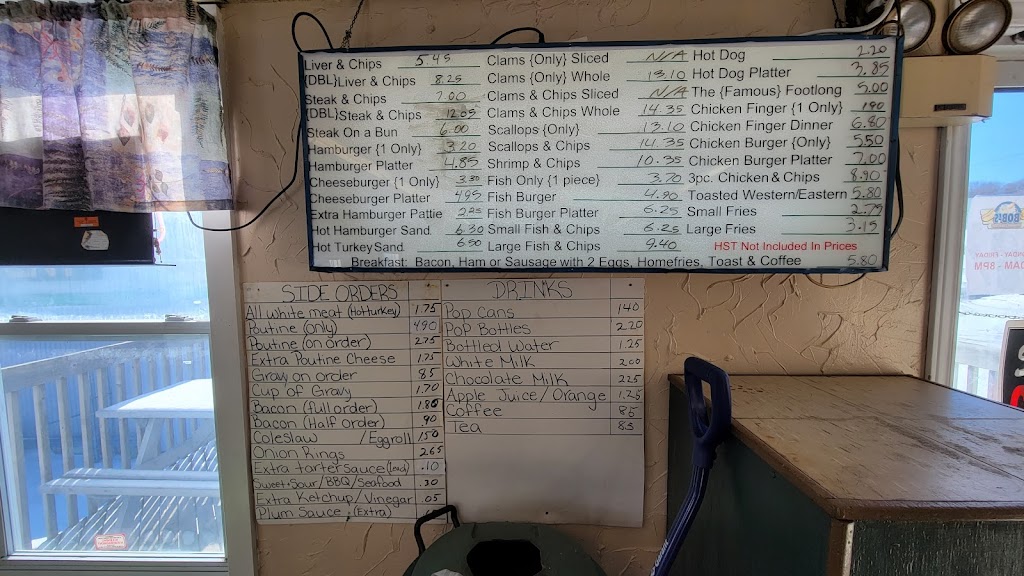 Liver & Chips 5.45
{DBL}Liver & Chips 8.25
Steak & Chips 7.00
{DBL}Steak & Chips 12.05
Steak On a Bun 6.00
Hamburger {1 Only} 3.20
Hamburger Platter 4.85
Cheeseburger {1 Only} 3.30
Cheeseburger Platter 4.95
Extra Hamburger Pattie 2.25
Hot Hamburger Sand. 6.30
Hot Turkey Sand. 6.50
Clams {Only} Sliced N/A
Clams {Only} Whole 13.10
Clams & Chips Sliced N/A
Clams & Chips Whole 14.35
Scallops {Only} 13.10
Scallops & Chips 14.35
Shrimp & Chips 10.35
Fish Only {1 piece} 3.70
Fish Burger 4.90
Fish Burger Platter 6.25
Small Fish & Chips 6.25
Large Fish & Chips 9.40
Hot Dog 2.20
Hot Dog Platter 3.85
The {Famous} Footlong 5.00
Chicken Finger {1 Only} 1.90
Chicken Finger Dinner 6.80
Chicken Burger {Only} 5.50
Chicken Burger Platter 7.00
3pc. Chicken & Chips 8.90
Toasted Western/Eastern 5.80
Small Fries 2.79
Large Fries 3.15
HST Not Included In Prices
Breakfast: Bacon, Ham or Sausage with 2 Eggs, Homefries, Toast & Coffee 5.80
SIDE ORDERS
All white meat (Hot turkey) 1.75
Poutine (only) 4.90
Poutine (on order) 2.75
Extra Poutine Cheese 1.75
Gravy on order 85
Cup of Gravy 1.70
Bacon (full order) 1.80
Bacon (Half order) .90
Coleslaw / Eggroll 1.50
Onion Rings 2.65
Extra tarter sauce (1 each) .10
Sweet+Sour/BBQ/Seafood .30
Extra Ketchup/Vinegar .05
Plum Sauce (Extra)
DRINKS
Pop Cans 1.40
Pop Bottles 2.20
Bottled Water 1.25
White Milk 2.00
Chocolate Milk 2.25
Apple Juice/Orange 1.25
Coffee 85
Tea 85
BOB'S